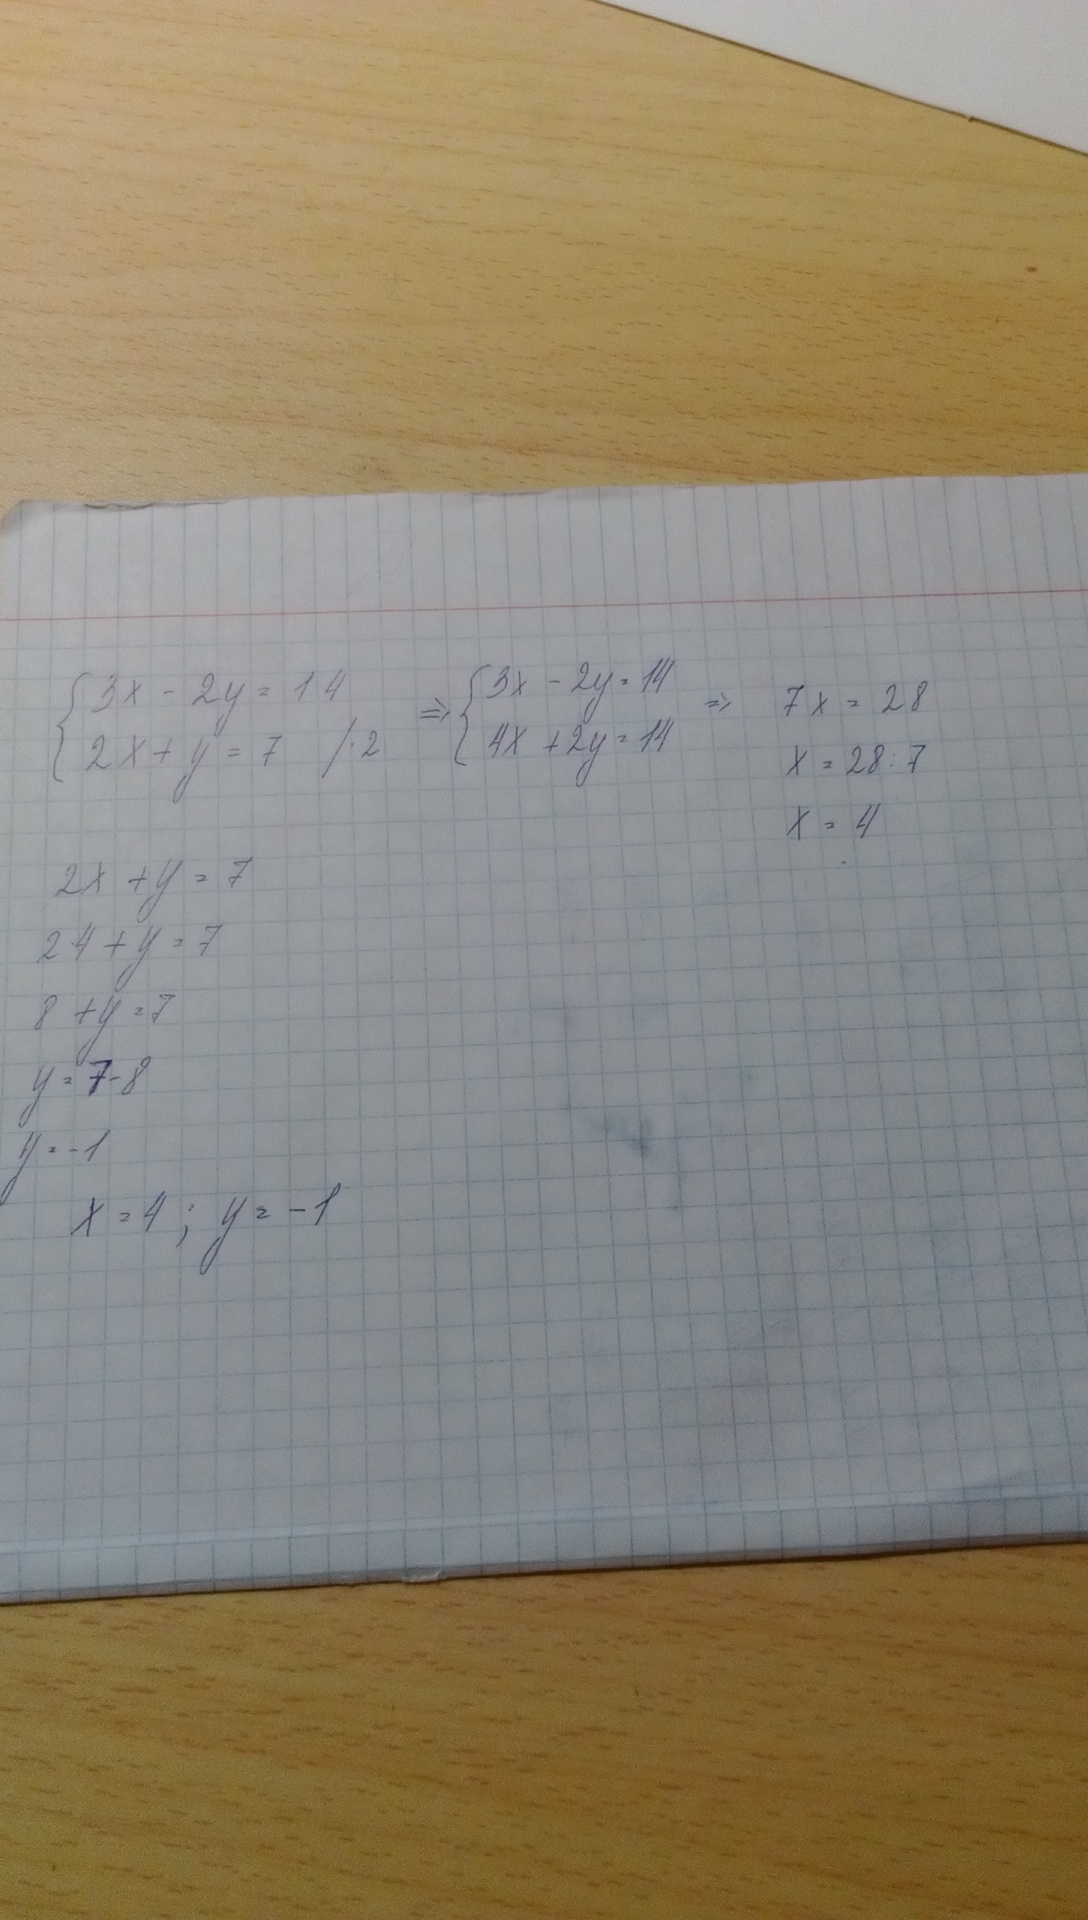 {3x - 2y = 14
{2x + y = 7 /·2
=> {3x - 2y = 14
{4x + 2y = 14
=> 7x = 28
x = 28:7
x = 4
2x + y = 7
2·4 + y = 7
8 + y = 7
y = 7-8
y = -1
x = 4 ; y = -1